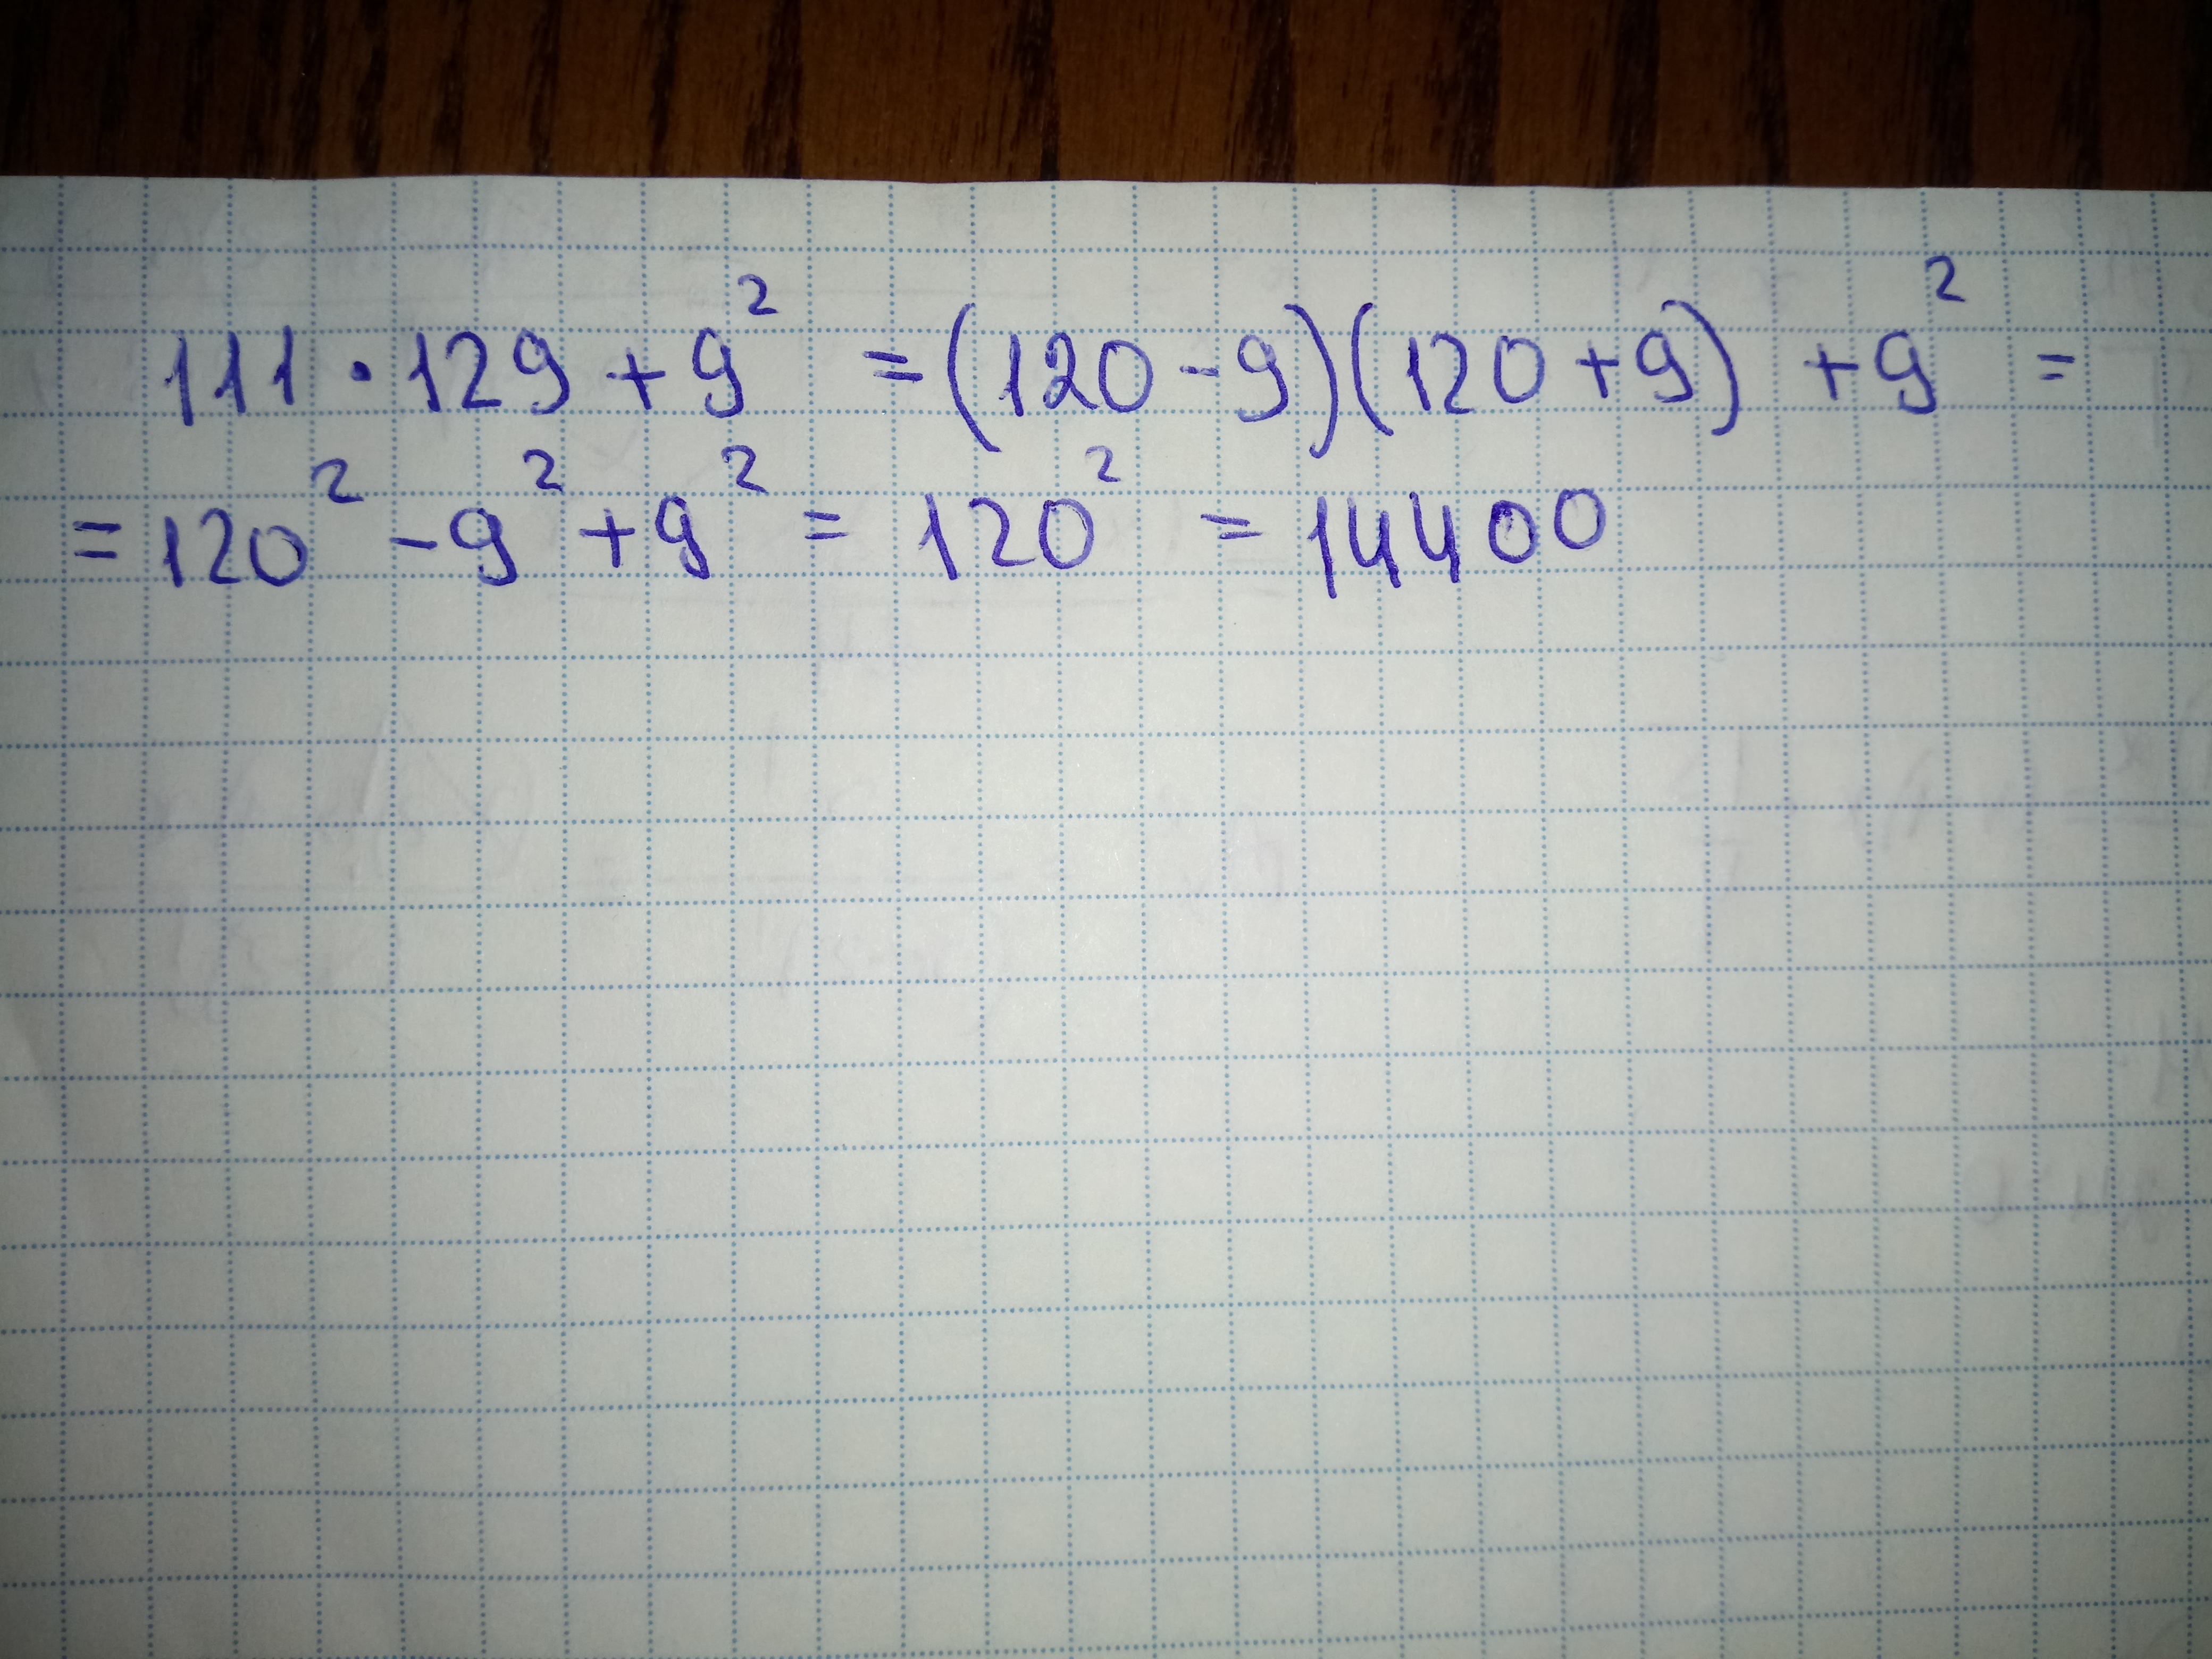 111·129+9² =(120-9)(120+9) +9² =
=120² -9² +9² = 120² =14400